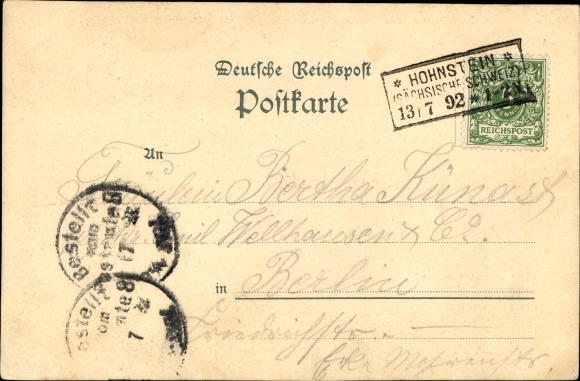 Deutsche Reichspost
Postkarte
* HOHNSTEIN *
(SÄCHSISCHE SCHWEIZ)
13/7 92 * 1-2N
REICHSPOST
An
Fräulein Bertha Künast
Emil Wellhausen & Co.
in Berlin
Friedrichstr.
Ecke
Bestellt
vom
Postamte 8
7
Bestellt
vom
Postamte 8
7